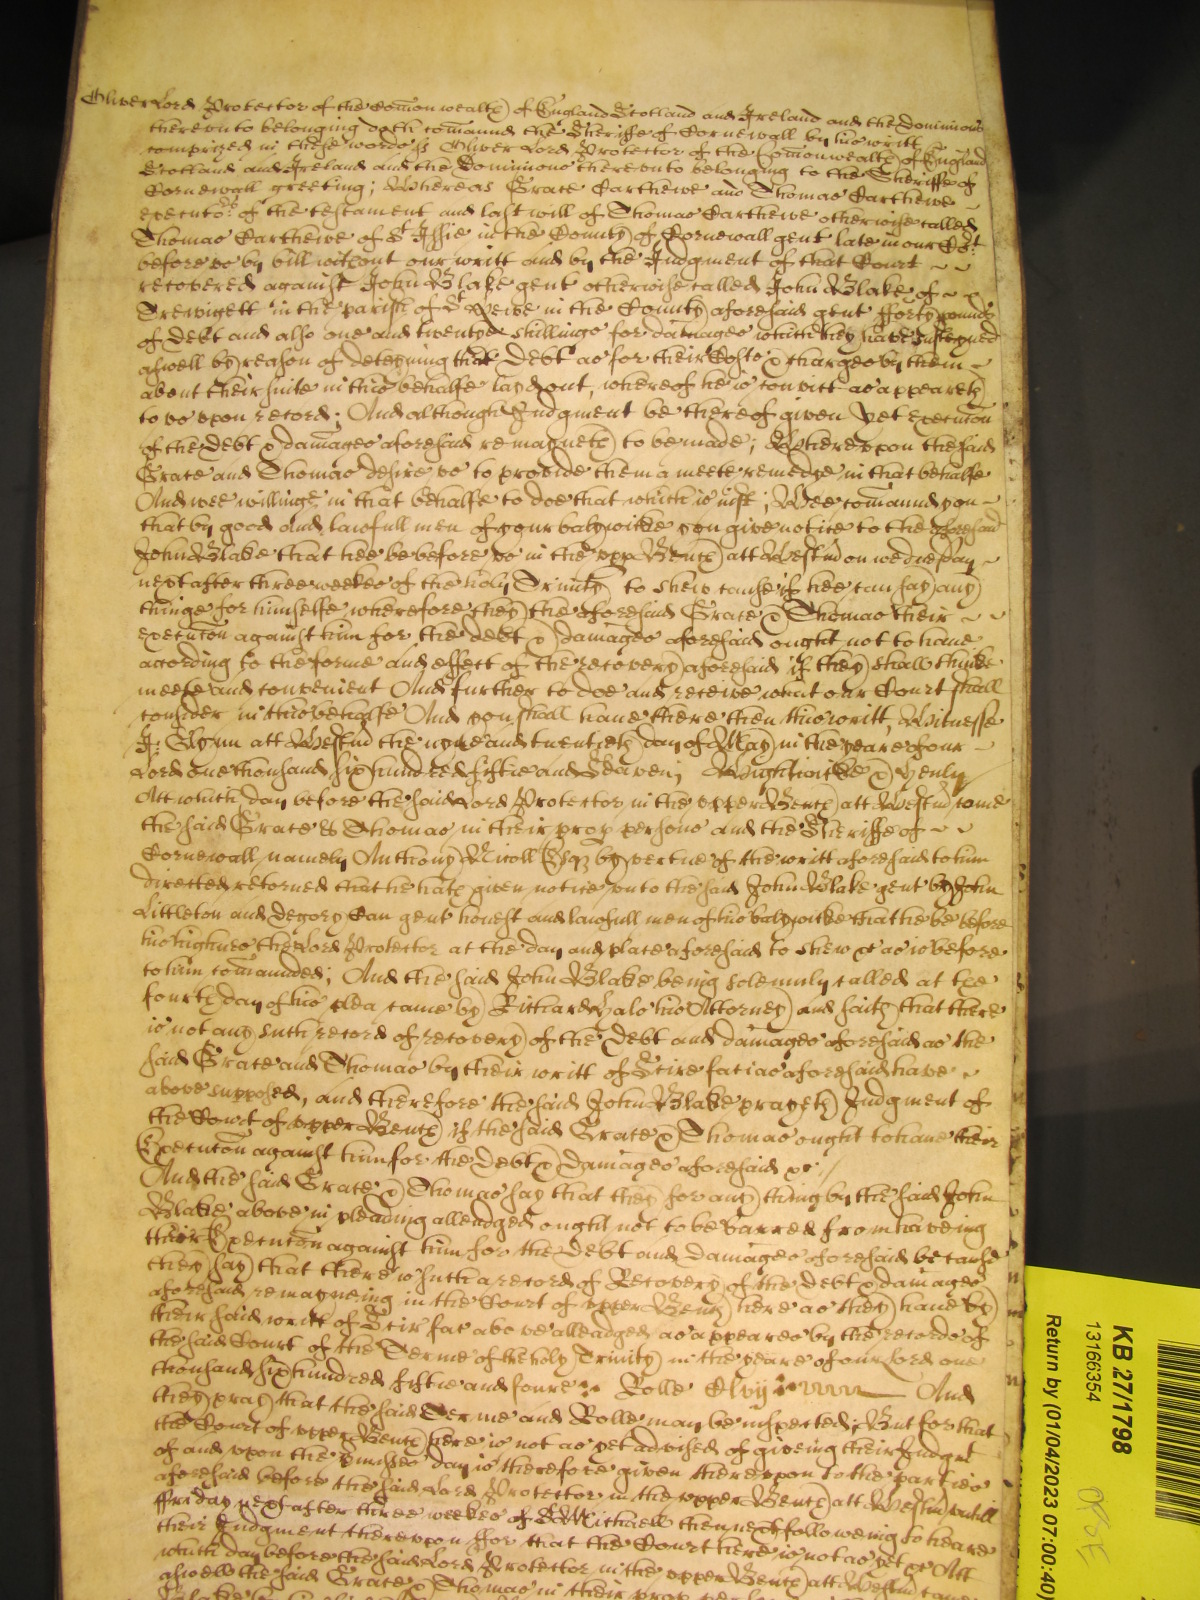 Oliver Lord Protector of the Com̄onwealth of England Scotland and Ireland and the Dominions
thereunto belonging doth com̄aund the Sheriffe of Cornewall by his writt
comprized in these words ss Oliver Lord Protector of the Com̄onwealth of England
Scotland and Ireland and the Dominions thereunto belonging to the Sheriffe of
Cornewall greeting; Whereas Grace Carthewe and Thomas Carthewe
executors of the testament and last will of Thomas Carthewe otherwise called
Thomas Carthewe of St Issie in the County of Cornewall gent late in our Cort
before us by bill without our writt and by the Judgment of that Court
recovered against John Blake gent otherwise called John Blake of
in the parish of St in the County aforesaid gent fforty pounds
of debt and also one and twentye shillings for damages which they have susteyned
aswell by reason of deteyning that Debt as for their Costs & charges by them
about their suite in this behalfe layd out, whereof he is convict as appeareth
to us upon record; And although Judgment be thereof given Yet execuc̄on
of the Debt & dam̄ages aforesaid remayneth to be made; Whereupon the said
Grace and Thomas desire us to provide them a meete remedye in that behalfe
And wee willinge in that behalfe to doe that which is just; Wee com̄aund you
that by good And lawfull men of your balywicke you give notice to the aforesaid
John Blake that hee be before us in the upp Bench att Westm̄ on wednesday
next after three weekes of the holy Trinity to shew cause if hee can say any
thinge for himselfe wherefore they the aforesaid Grace & Thomas their
execuc̄on against him for the debt & damages aforesaid ought not to have
acording to the forme and effect of the recovery aforesaid if they shall thinke
meete and convenient And further to doe and receive what our Court shall
consider in this behalfe And you shall have there then this writt, Witnesse
J: Glynn att Westm̄ the nyne and twentieth day of May in the yeare of our
Lord one thousand six hundred fiftie and Seaven; Wightwicke & Henly
Att which day before the said Lord Protector in the upper Bench att Westm̄ come
the said Grace & Thomas in their prop persons and the Sheriffe of
Cornewall namely Anthony Nicoll Esqz by vertue of the writt aforesaid to him
directed retorned that he hath given notice unto the said John Blake gent by John
Littleton and Degory gent honest and lawfull men of his balywicke that he be before
his highnes the Lord Protector at the day and place aforesaid to shew &c as is before
to him com̄aunded; And the said John Blake being solemnly called at the
fourth day of his plea came by Richard his Attorney and saith that there
is not any such record of recovery of the Debt and damages aforesaid as the
said Grace and Thomas by their writt of Scire facias aforesaid have
above supposed, and therefore the said John Blake prayeth Judgment of
the Court of upper Bench if the said Grace & Thomas ought to have their
Execuc̄on against him for the Debt & Damages aforesaid &c
And the said Grace & Thomas say that they for any thing by the said John
Blake above in pleading alleadged ought not to be barred from haveing
their Execuc̄on against him for the Debt and Damages aforesaid because
they say that there is such a record of Recovery of the Debt & damages
aforesaid remayneing in the Court of upper Bench here as they have by
their said writt of Scir fac above alleadged as appeares by the records of
the said Court of the Terme of the holy Trinity in the yeare of our Lord one
thousand six hundred fiftie and foure Rolle And
they pray that the said Terme and Rolle may be inspected; But for that
the Court of upper Bench here is not as yet advised of giveing their Judgt
of and upon the p̄misses day is therefore given thereupon to the parties
aforesaid before the said Lord Protector in the upper Bench att Westm̄ untill
ffriday next after three weekes of St Michaell then next followeing to heare
their Judgment thereupon ffor that the Court here is not as yet &c Att
which day before the said Lord Protector in the upper Bench att Westm̄ came
aswell the said Grace & Thomas in their prop persons
KB 27/1798
13166354
Return by (01/04/2023 07:00:40)